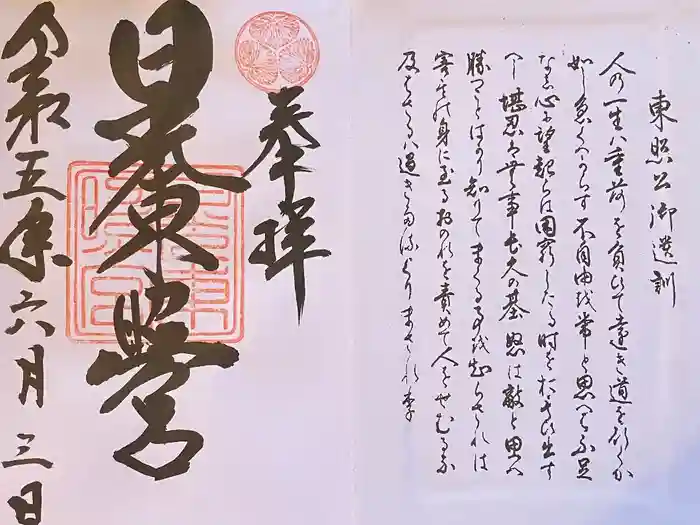 奉拝
日光東照宮
令和五年六月三日
東照公御遺訓
人の一生は重荷を負ひて遠き道を行くか
如し急くへからす不自由を常と思へは不足
なし心に望起らは困窮したる時を思ひ出す
へし堪忍は無事長久の基怒は敵と思へ
勝つことはかり知りてまくる事を知らされは
害其の身に至るおのれを責めて人をせむるな
及はさるは過きたるよりまされり